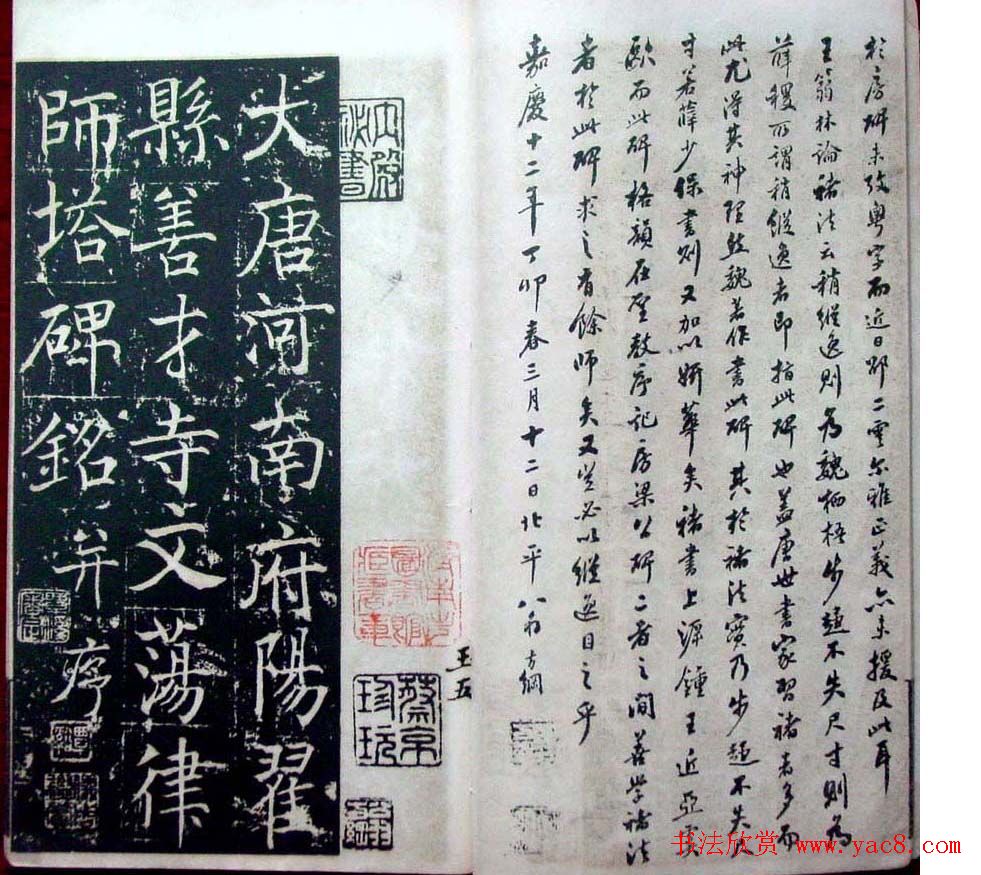 於房碑未改粤字而近日邵二雲尔雅正義亦未援及此耳
王翁林論褚法云稍縱逸則為魏栖梧步趨不失尺寸則為
薛稷所謂稍縱逸者即指此碑也蓋唐世書家習褚者多而
此尤得其神理然魏著作書此碑其於褚法實乃步趨不失尺
寸若薛少保書則又加以妍華矣褚書上源鍾王近亞
歐而此碑格韻在聖教序記房梁公碑二者之間善學褚法
者於此碑求之有餘師矣又豈必以縱逸目之乎
嘉慶十二年丁卯春三月十二日北平翁方綱
大唐河南府陽翟
縣善才寺文蕩律
師塔碑銘并序
蔡京珍玩
王五
书法欣赏 www.yac8.com